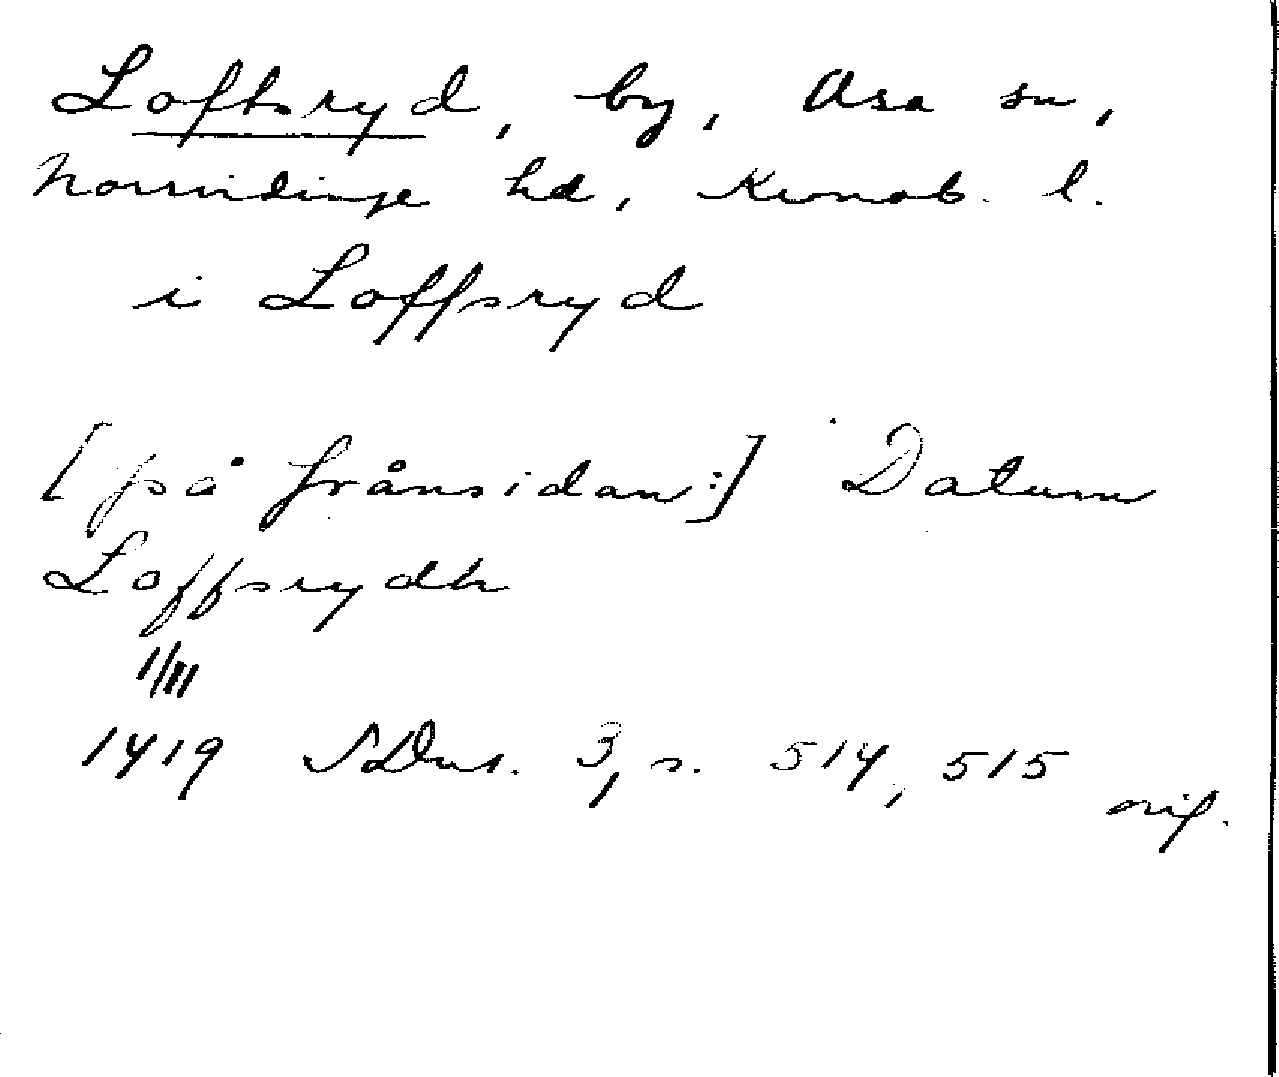 Loftsryd, by, Asa sn,
Norrvidinge hd, Kronob. l.
i Loffsryd
[på frånsidan:] Datum
Loffsrydh
1/III
1419 SDns. 3, s. 514, 515
orig.